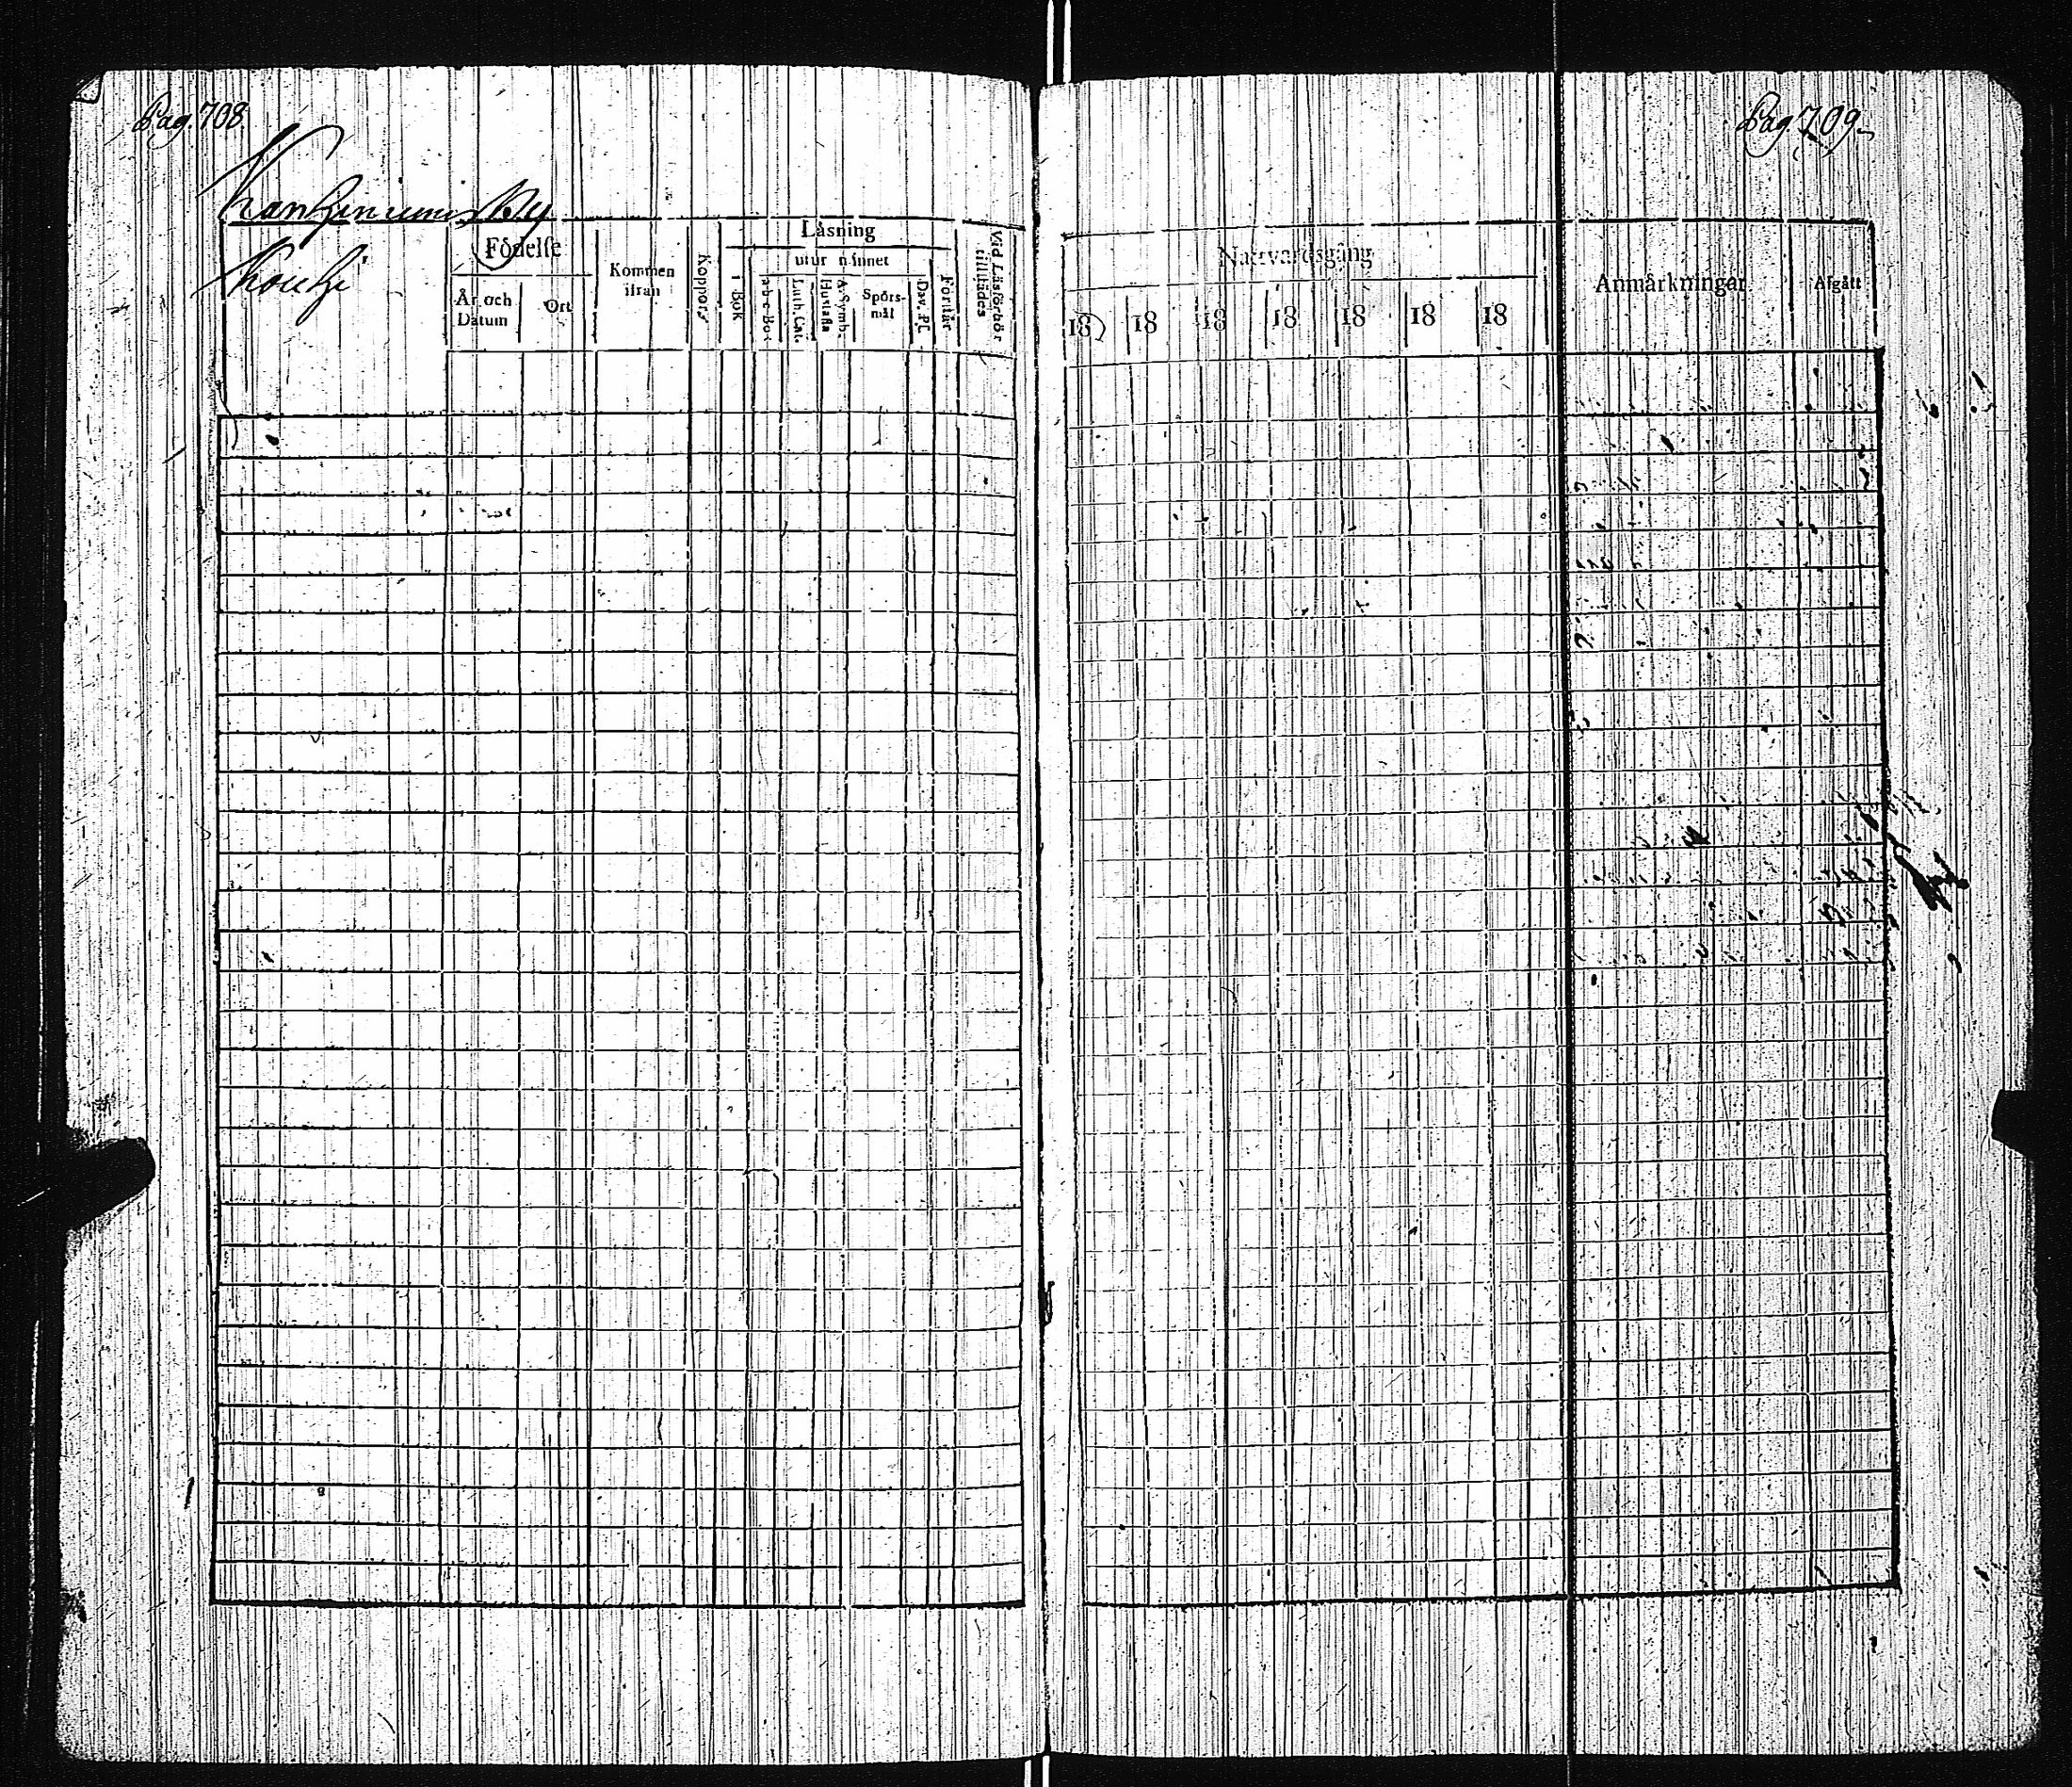 Pag. 708.
By
Födelse
År och Datum
Ort
Kommen ifrån
Koppor
Läsning
i Bok
utur minnet
a-b-c-Bok
Luth. Cat.
Hustafla
A. Symb.
Spörsmål
Dav. Ps.
Förstår
Vid Läsförhör tillstädes
Pag. 709.
Nattvardsgång
18 18 18 18 18 18 18
Anmärkningar
Afgått